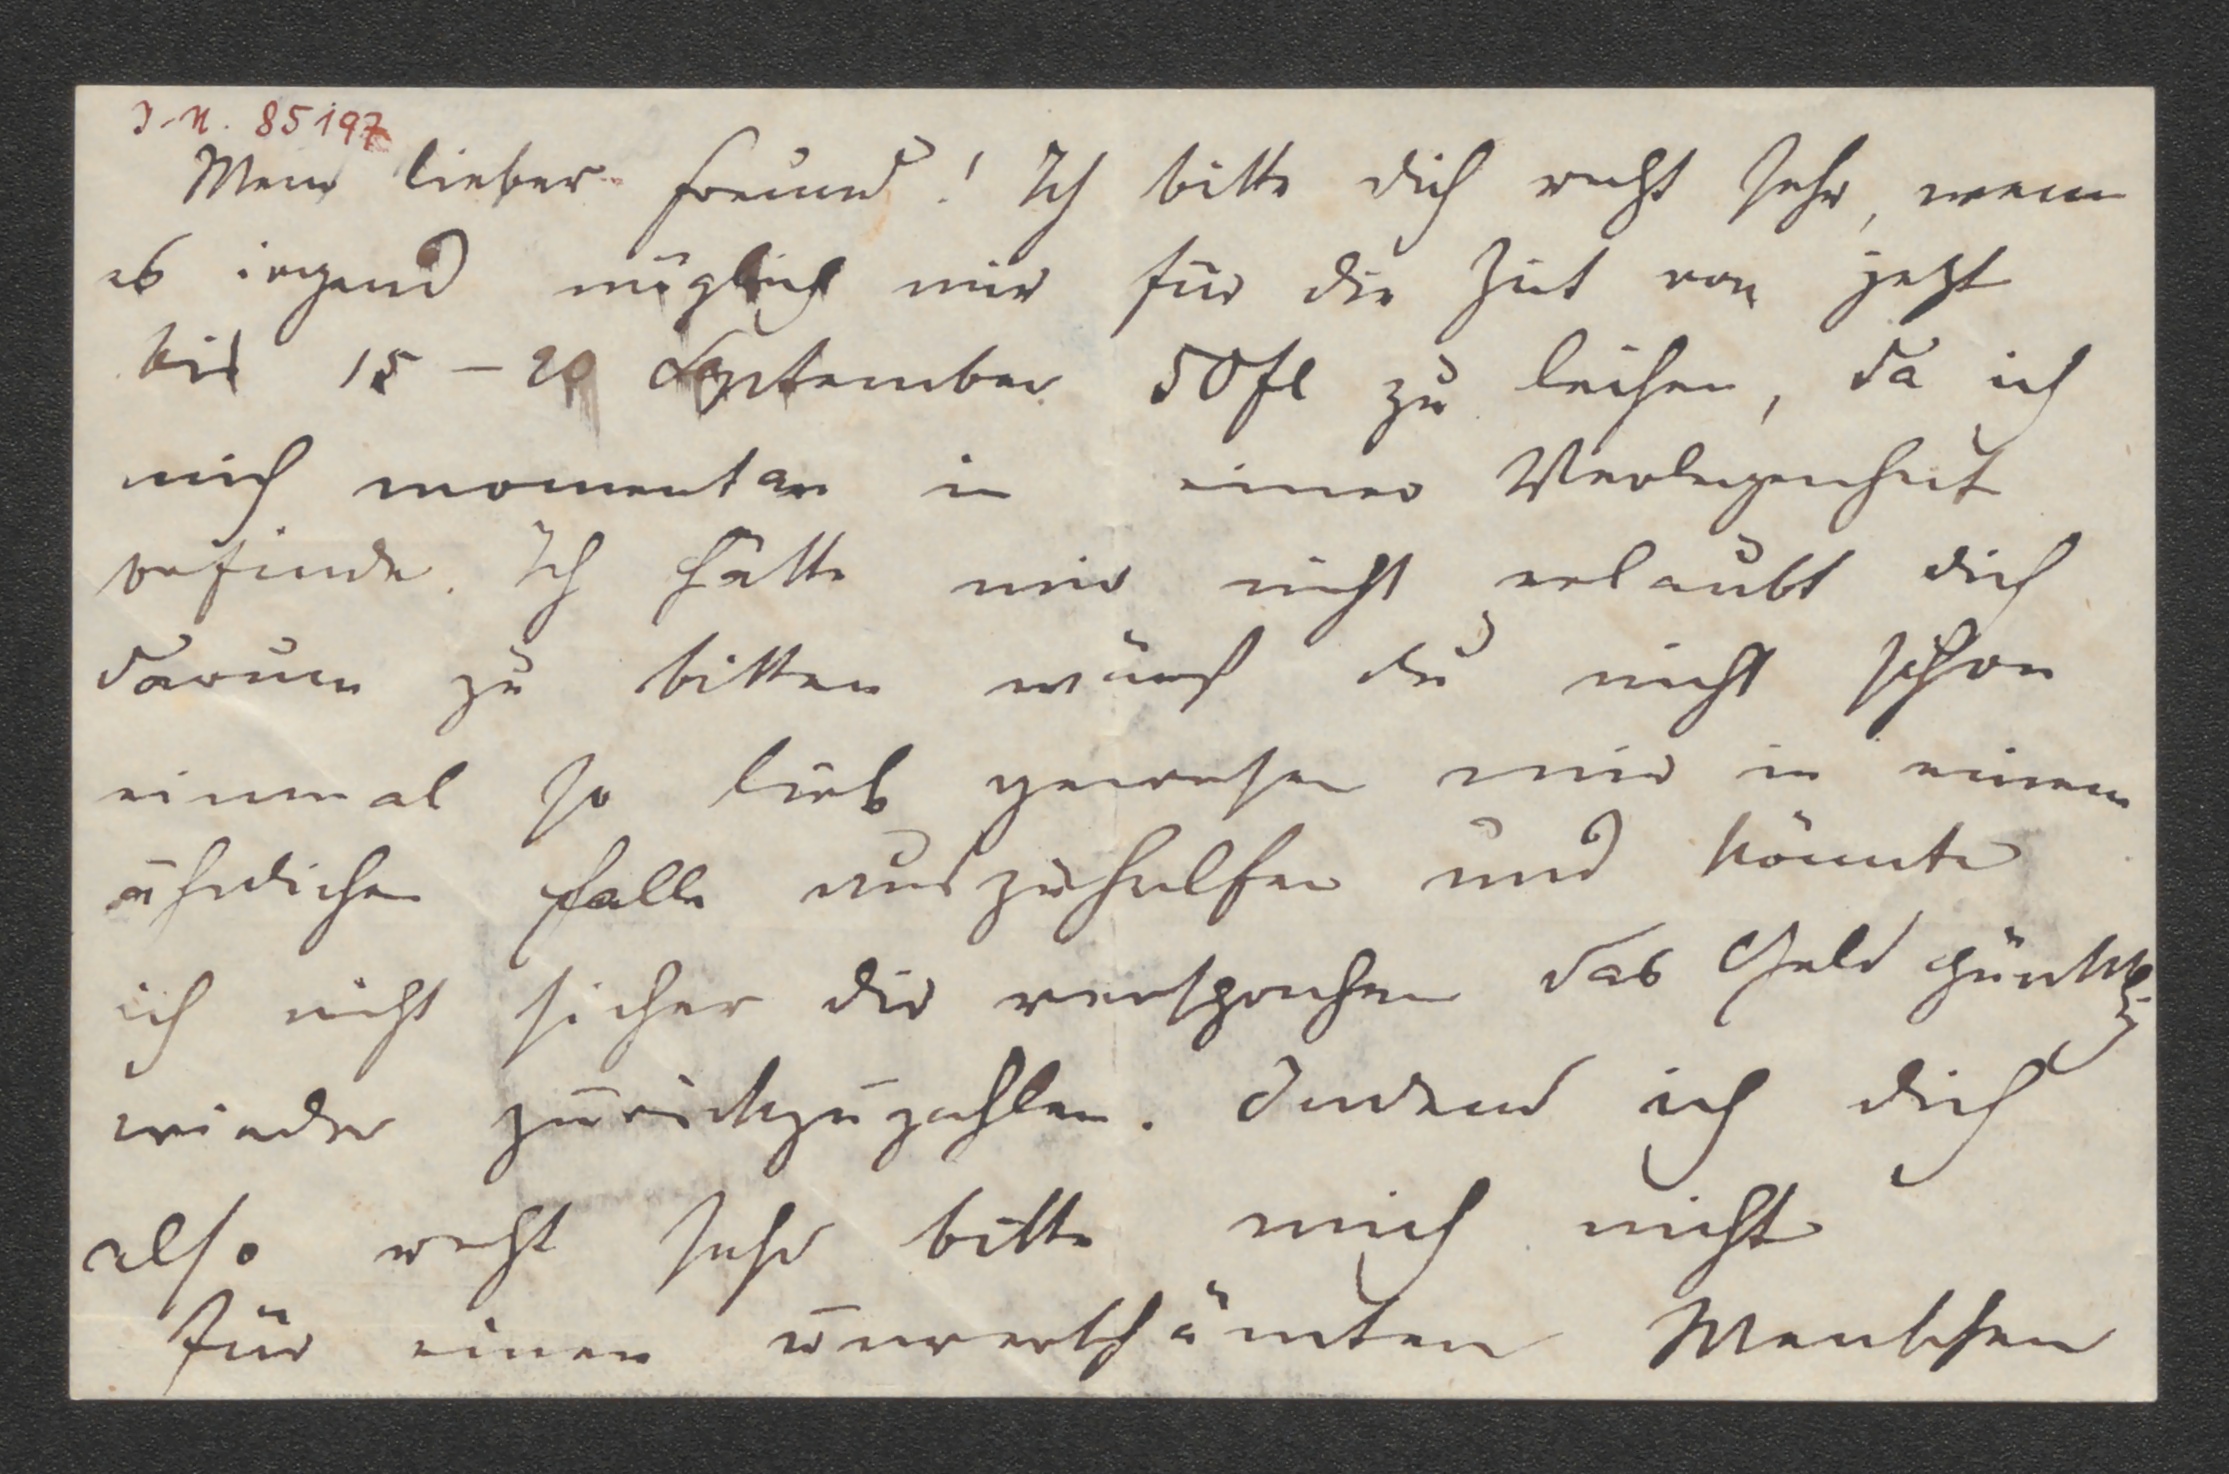 I.N. 85197
Mein lieber Freund! Ich bitte dich recht sehr, wenn
es irgend möglich mir für die Zeit von jetzt
bis 15 – 20 September 50 fl zu leihen, da ich
mich momentan in einer Verlegenheit
befinde. Ich hätte mir nicht erlaubt dich
darum zu bitten wärest du nicht schon
einmal so lieb gewesen mir in einem
ähnlichen Falle auszuhelfen und könnte
ich nicht sicher dir versprechen das Geld pünktlich
wieder zurückzuzahlen. Indem ich dich
also recht sehr bitte mich nicht
für einen unverschämten Menschen